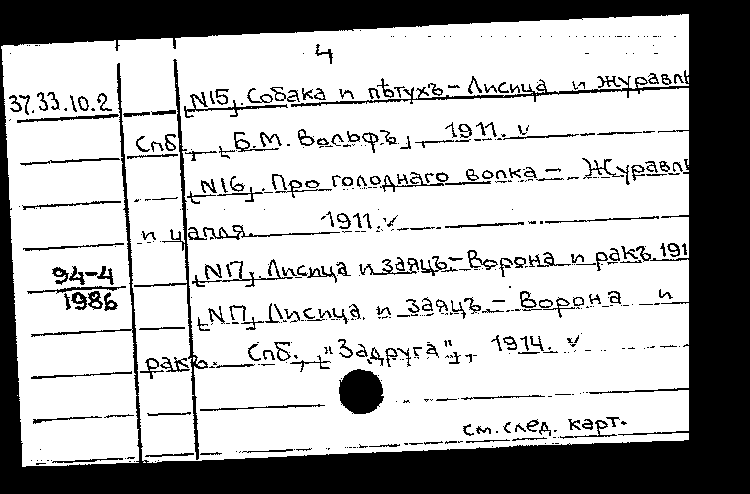 4
37.33.10.2 [N15]. Собака и пѣтухъ – Лисица и журавль
Спб., [Б.М. Вольфъ], 1911. v
[N16]. Про голоднаго волка – Журавль
и цапля. 1911. v
94-4 [N17]. Лисица и заяцъ. – Ворона и ракъ. 191
1986 [N17]. Лисица и заяцъ. – Ворона и
ракъ. Спб., ["Задруга"], 1914. v
см. след. карт.